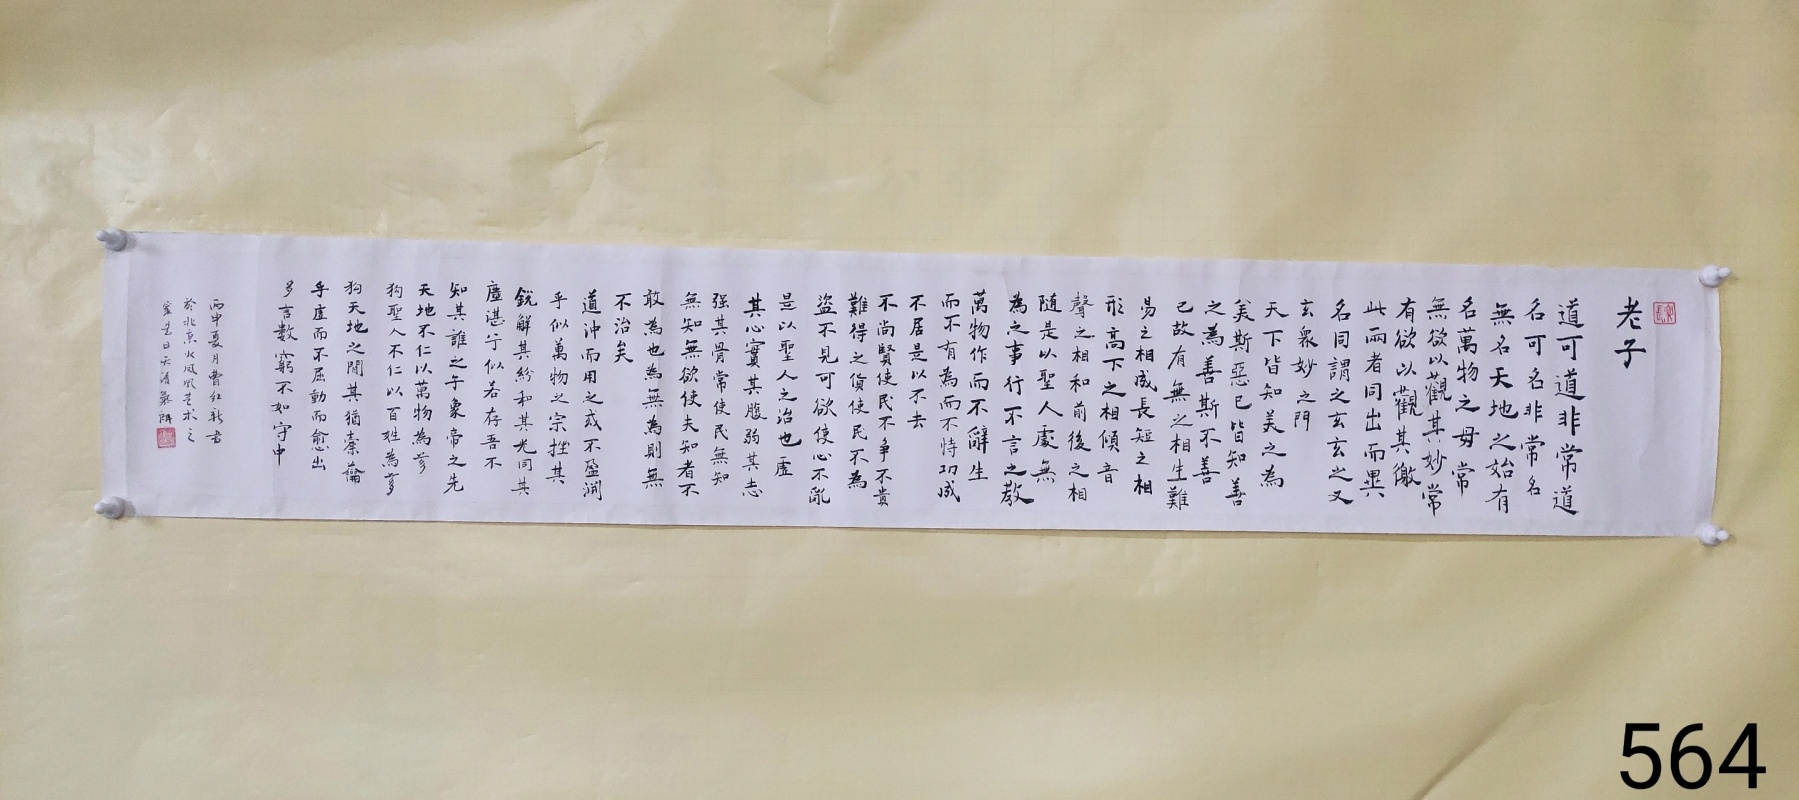 老子
道可道非常道
名可名非常名
無名天地之始有
名萬物之母常
無欲以觀其妙常
有欲以觀其徼
此兩者同出而異
名同謂之玄玄之又
玄衆妙之門
天下皆知美之為
美斯惡已皆知善
之為善斯不善
已故有無之相生難
易之相成長短之相
形高下之相傾音
聲之相和前後之相
隨是以聖人處無
為之事行不言之教
萬物作而不辭生
而不有為而不恃功成
不居是以不去
不尚賢使民不爭不貴
難得之貨使民不為
盜不見可欲使心不亂
是以聖人之治也虛
其心實其腹弱其志
强其骨常使民無知
無知無欲使夫知者不
敢為也為無為則無
不治矣
道沖而用之或不盈淵
乎似萬物之宗挫其
銳解其紛和其光同其
塵湛兮似若存吾不
知其誰之子象帝之先
天地不仁以萬物為芻
狗聖人不仁以百姓為芻
狗天地之間其猶橐籥
乎虛而不屈動而愈出
多言數窮不如守中
丙申夏月曹紅新書
於北京火鳳凰艺术之
家是日天清氣朗
564